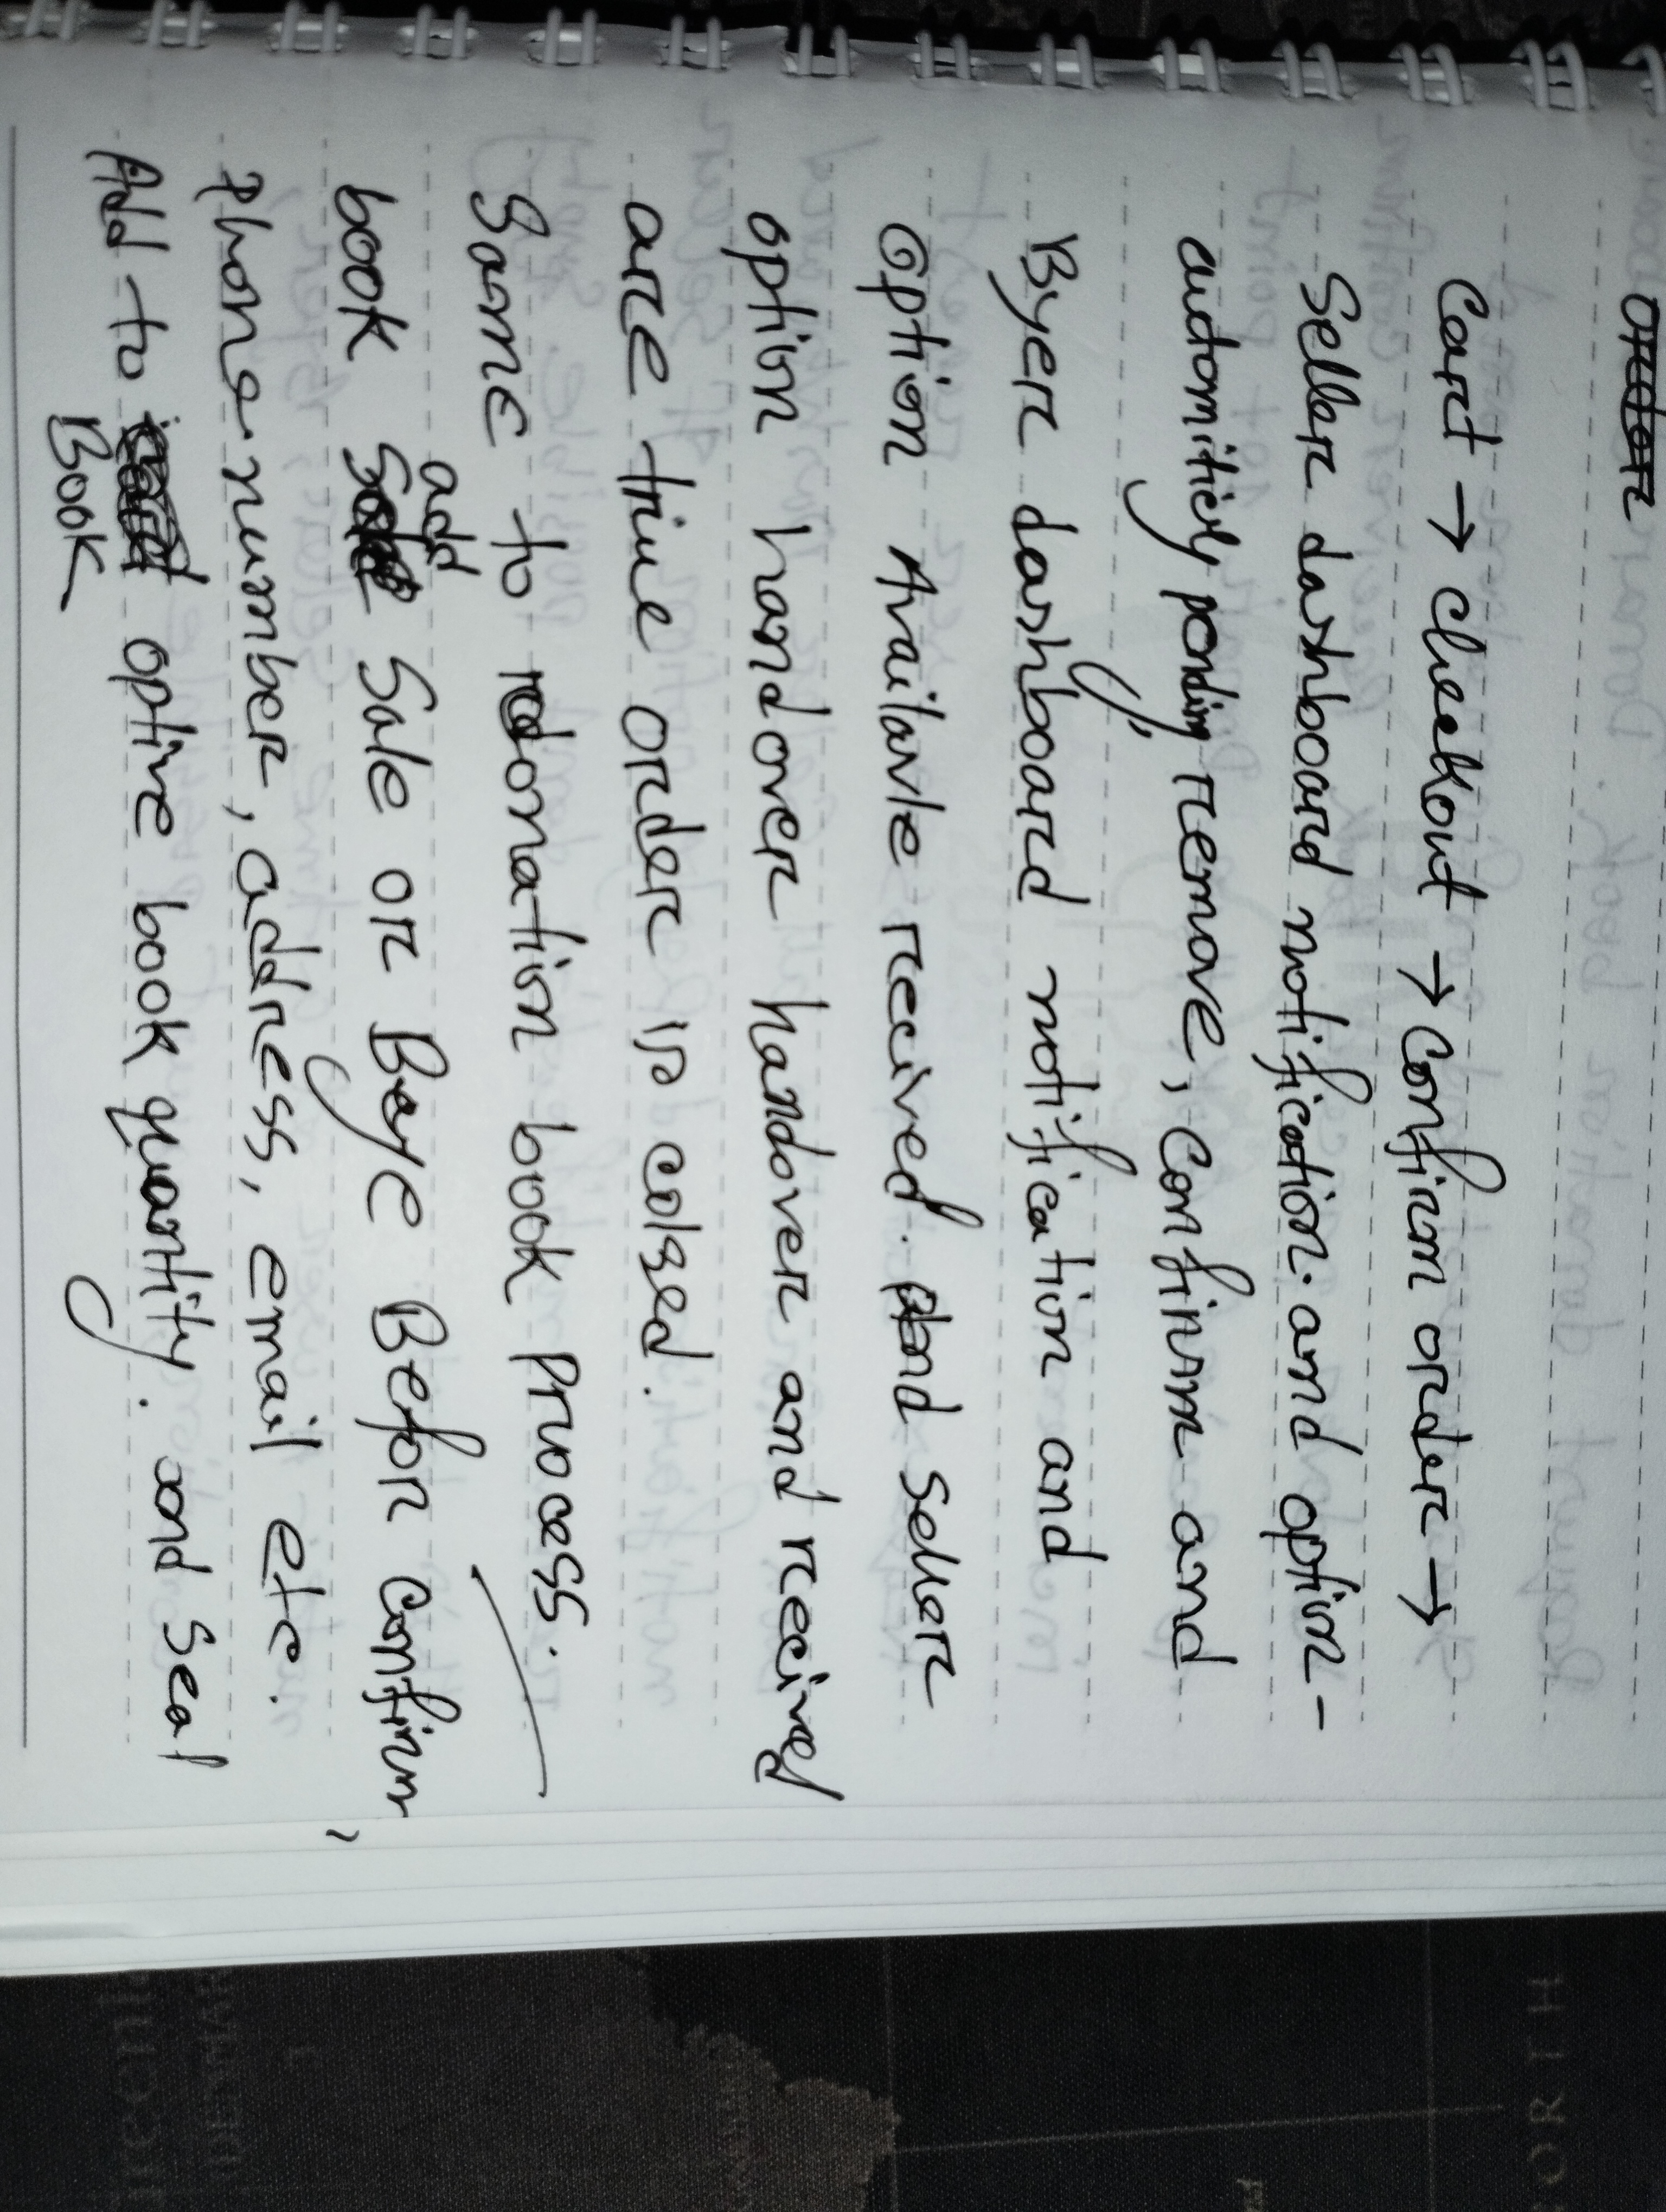 Cart → Cheekout → Confirm order →
Seller dashboard notification. and option -
automiticly pending remove, Confirm and
Byer dashboard notification and
Option Availavle received. and seller
option handover handover and received
are true order is colsed.
Same to donation book Process.
book add Sale or Baye Befor Confirm,
Phone number, address, email ete.
Add to optine book quantity. and seal
Book
ORTH